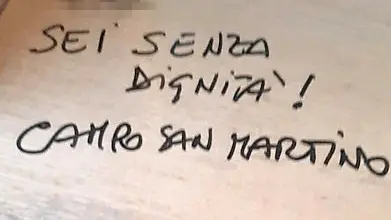 SEI SENZA
DIGNITÀ!
CAMPO SAN MARTINO